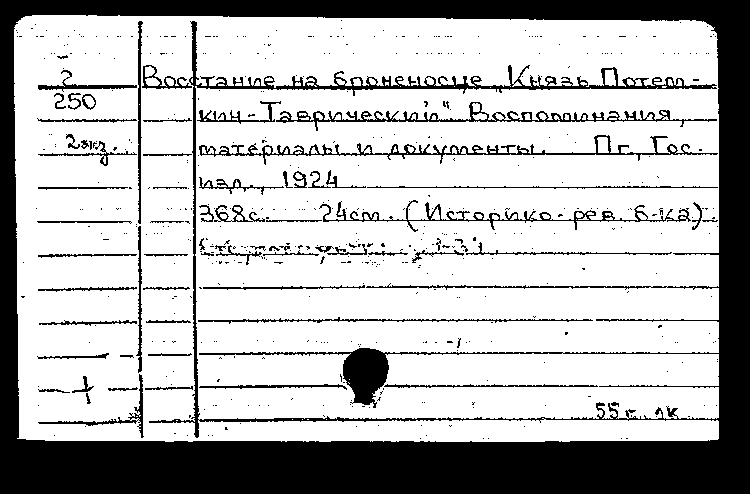 2
250
2 экз.
Восстание на броненосце „Князь Потем-
кин-Таврический". Воспоминания,
материалы и документы. Пг., Гос.
изд., 1924
368с. 24см. (Историко-рев. б-ка).
55г.